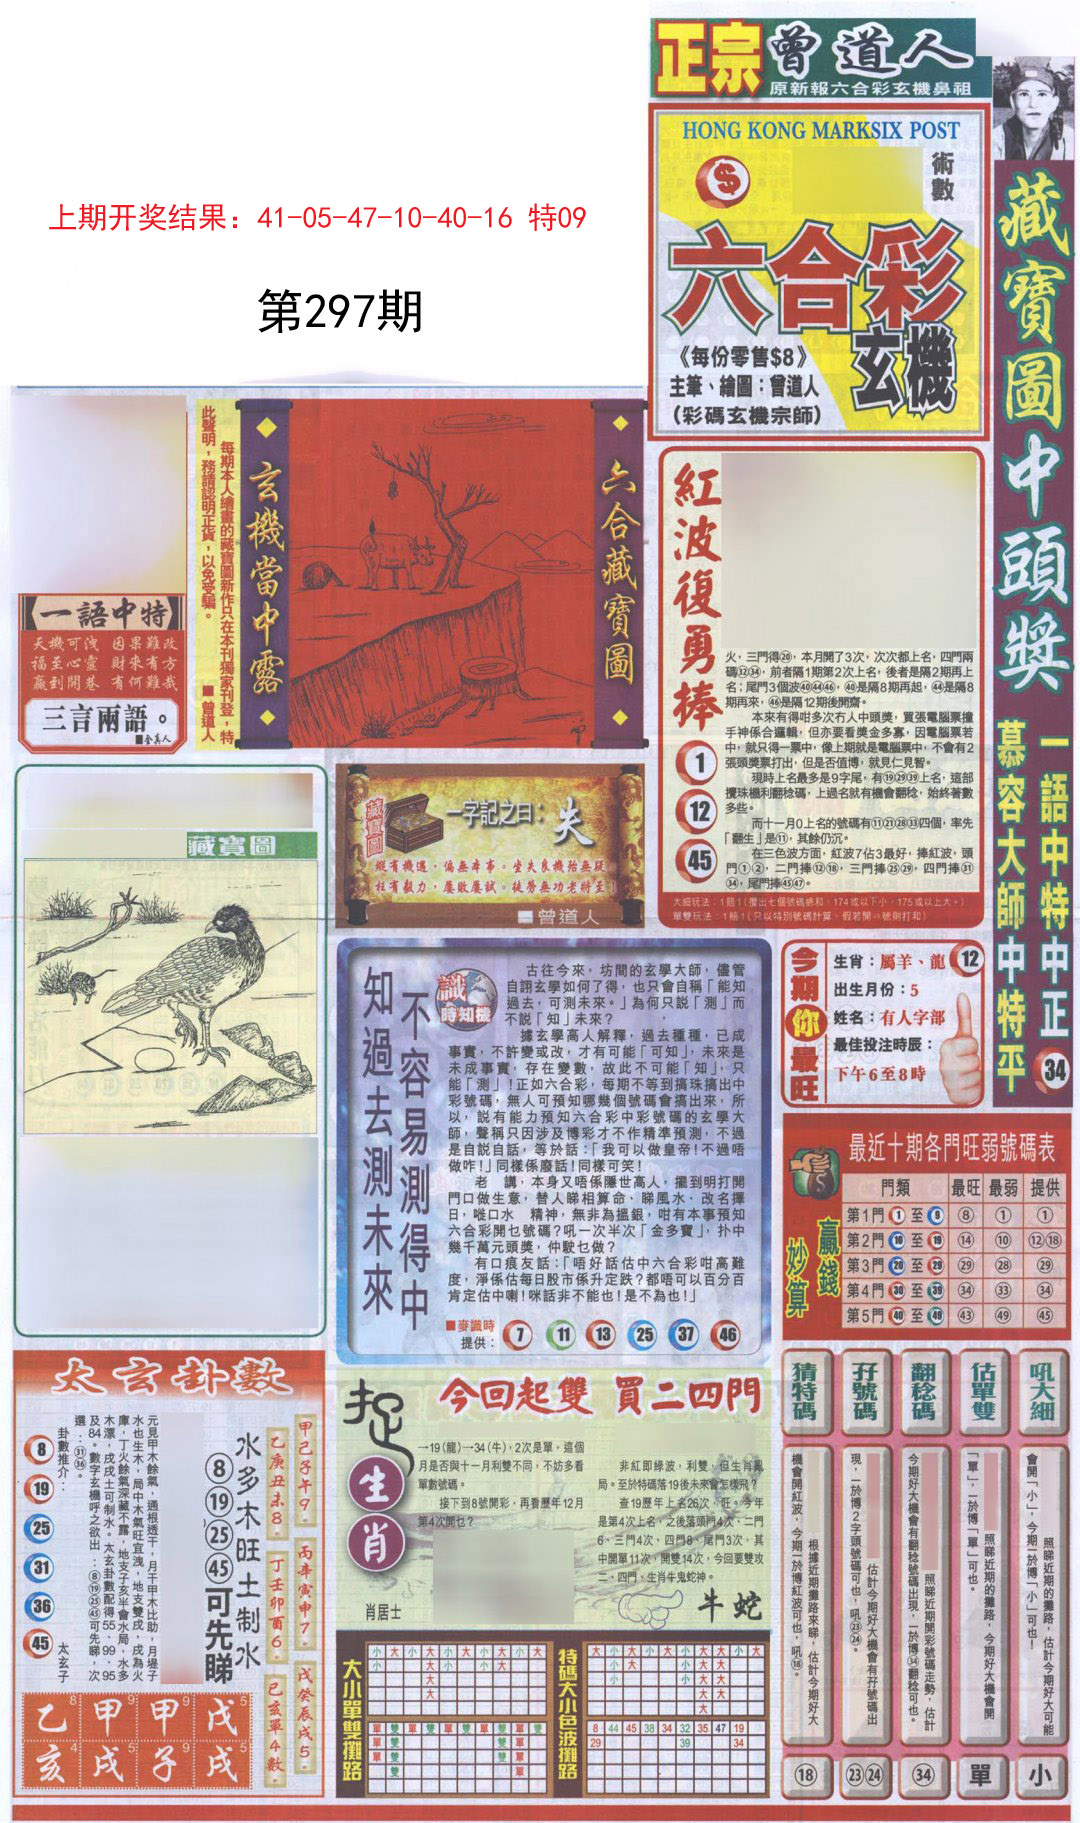 正宗曾道人
原新報六合彩玄機鼻祖
HONG KONG MARKSIX POST
術數
六合彩
玄機
《每份零售$8》
主筆、繪圖：曾道人
（彩碼玄機宗師）
藏寶圖中頭獎
一語中特中正
慕容大師中特平
34
上期开奖结果：41-05-47-10-40-16 特09
第297期
【一語中特】
天機可洩 因果難改
福至心靈 財來有方
贏到開巷 有何難哉
三言兩語。
■金真人
每期本人繪畫的藏寶圖新作只在本刊獨家刊登，特
此聲明，務請認明正貨，以免受騙。 ■曾道人
玄機當中露
六合藏寶圖
紅波復勇捧
1
12
45
火，三門得⑳，本月開了3次，次次都上名，四門兩
碼㉜㉞，前者隔1期第2次上名，後者是隔2期再上
名；尾門3個波㊵㊹㊻，㊵是隔8期再起，㊹是隔8
期再來，㊻是隔12期後開齋。
本來有得咁多次冇人中頭獎，買張電腦票撞
手神係合邏輯，但亦要看獎金多寡，因電腦票若
中，就只得一票中，像上期就是電腦票中，不會有2
張頭獎票打出，但是否值博，就見仁見智。
現時上名最多是9字尾，有⑲㉙㊴上名，這部
攪珠機利翻稔碼，上過名就有機會翻稔，始終著數
多些。
而十一月0上名的號碼有⑪㉑㉘㉝四個，率先
「翻生」是⑪，其餘仍沉。
在三色波方面，紅波7佔3最好，捧紅波，頭
門①②，二門捧⑫⑱，三門捧㉕㉙，四門捧㉛
㉞，尾門捧㊺㊼。
大細玩法：1賠1（攪出七個號碼總和，174或以下小，175或以上大。）
藏寶圖
一字記之曰：失
縱有機遇，偏無本事。坐失良機殆無疑
枉有毅力，屢敗屢試。徒勞無功老將至！
■曾道人
藏寶圖
知過去測未來
不容易測得中
識時知機
古往今來，坊間的玄學大師，儘管
自詡玄學如何了得，也只會自稱「能知
過去，可測未來。」為何只說「測」而
不說「知」未來？
據玄學高人解釋，過去種種，已成
事實，不許變或改，才有可能「可知」，未來是
未成事實，存在變數，故此不可能「知」，只
能「測」！正如六合彩，每期不等到搞珠搞出中
彩號碼，無人可預知哪幾個號碼會搞出來，所
以，說有能力預知六合彩中彩號碼的玄學大
師，聲稱只因涉及博彩才不作精準預測，不過
是自說自話，等於話：「我可以做皇帝！不過唔
做咋！」同樣係廢話！同樣可笑！
老 講，本身又唔係隱世高人，擺到明打開
門口做生意，替人睇相算命、睇風水、改名擇
日，嘥口水 精神，無非為搵銀，咁有本事預知
六合彩開乜號碼？吼一次半次「金多寶」，扑中
幾千萬元頭獎，仲駛乜做？
有口痕友話：「唔好話估中六合彩咁高難
度，淨係估每日股市係升定跌？都唔可以百分百
肯定估中喇！咪話非不能也！是不為也！」
■麥識時
提供：
7 11 13 25 37 46
今期你最旺
生肖：屬羊、龍 12
出生月份：5
姓名：有人字部
最佳投注時辰：
下午6至8時
贏錢妙算
最近十期各門旺弱號碼表
門類 最旺 最弱 提供
第1門 1 至 9 ⑧ ① ①
第2門 10 至 19 ⑭ ⑩ ⑫⑱
第3門 20 至 29 ㉙ ㉘ ㉙
第4門 30 至 39 ㉞ ㉝ ㉞
第5門 40 至 49 ㊸ ㊾ ㊺
太玄卦數
甲己子午9，
乙庚丑未8，
丙辛寅申7，
丁壬卯酉6，
戊癸辰戌5，
己亥單4數。
水多木旺土制水
⑧⑲㉕㊺可先睇
元見甲木餘氣，通根透干，月干甲木比助，月堤子
水也生木，局中木氣旺宜洩，地支雙戌，戌為火
庫，丁火餘氣深藏不露，地支子亥半會水局，水多
木漂，戌戌土可制水。太玄卦數配得55、99、95
及84。數字玄機呼之欲出：⑧⑲㉕㊺可先睇，次
選：㉛㊱。
太玄子
卦數推介：
8
19
25
31
36
45
乙 8 甲 9 甲 9 戊 5
亥 4 戌 5 子 9 戌 5
捉生肖
今回起雙 買二四門
→19（龍）→34（牛），2次是單，這個
月是否與十一月利雙不同，不妨多看
單數號碼。
接下到8號開彩，再看歷年12月
第4次開乜？
肖居士
非紅即綠波，利雙，但生肖亂
局。至於特碼落19後未來會怎樣飛？
查19歷年上名26次，旺。今年
是第4次上名，之後落頭門4次、二門
6、三門4次、四門8、尾門3次，其
中開單11次，開雙14次，今回要雙攻
二、四門，生肖牛鬼蛇神。
牛 蛇
大小單雙攤路
特碼大小色波攤路
8 44 45 38 34 32 35 47 19
29 39 34
猜特碼
根據近期攤路來睇，估計今期好大
機會開紅波，今期一於博紅波可也，吼⑱。
⑱
孖號碼
估計今期好大機會有孖號碼出
現，一於博2字頭號碼可也，吼㉓㉔。
㉓㉔
翻稔碼
照睇近期開彩號碼走勢，估計
今期好大機會有翻稔號碼出現，一於博㉞翻稔可也。
㉞
估單雙
照睇近期的攤路，今期好大機會開
「單」，一於博「單」可也。
單
吼大細
照睇近期的攤路，估計今期好大可能
會開「小」，今期一於博「小」可也！
小